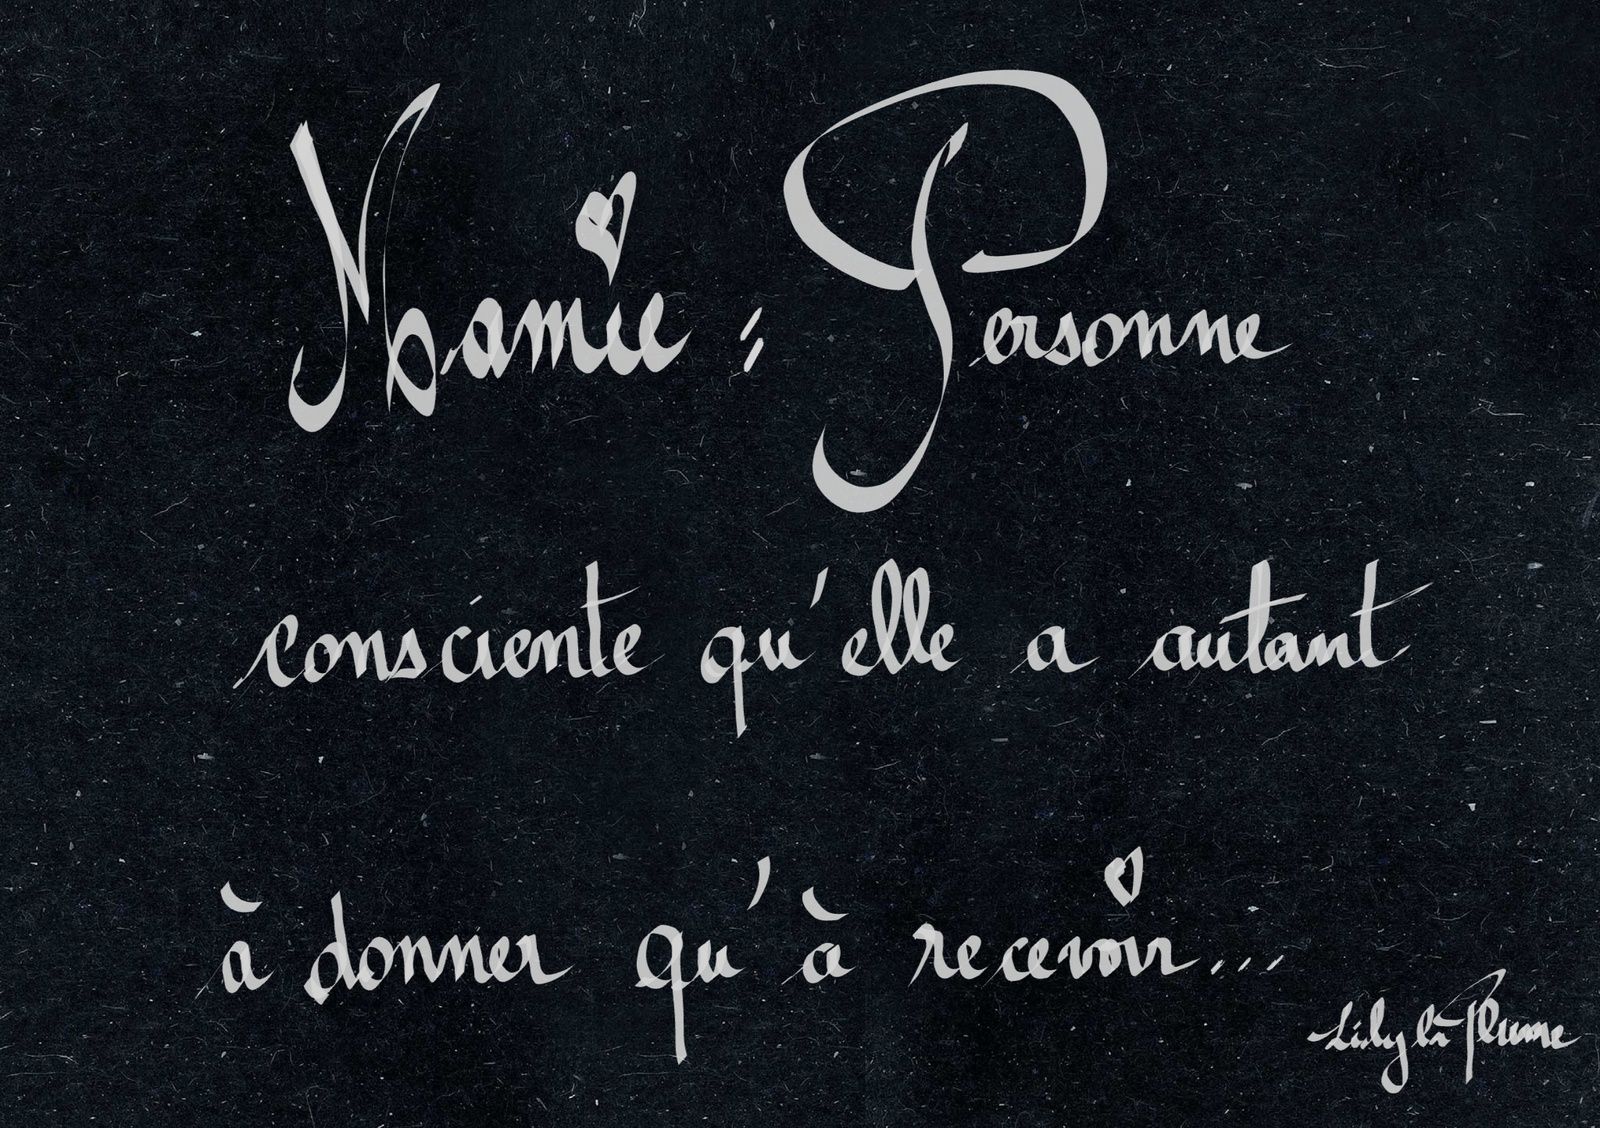 Mamie : Personne
consciente qu'elle a autant
à donner qu'à recevoir...
Lily la Plume